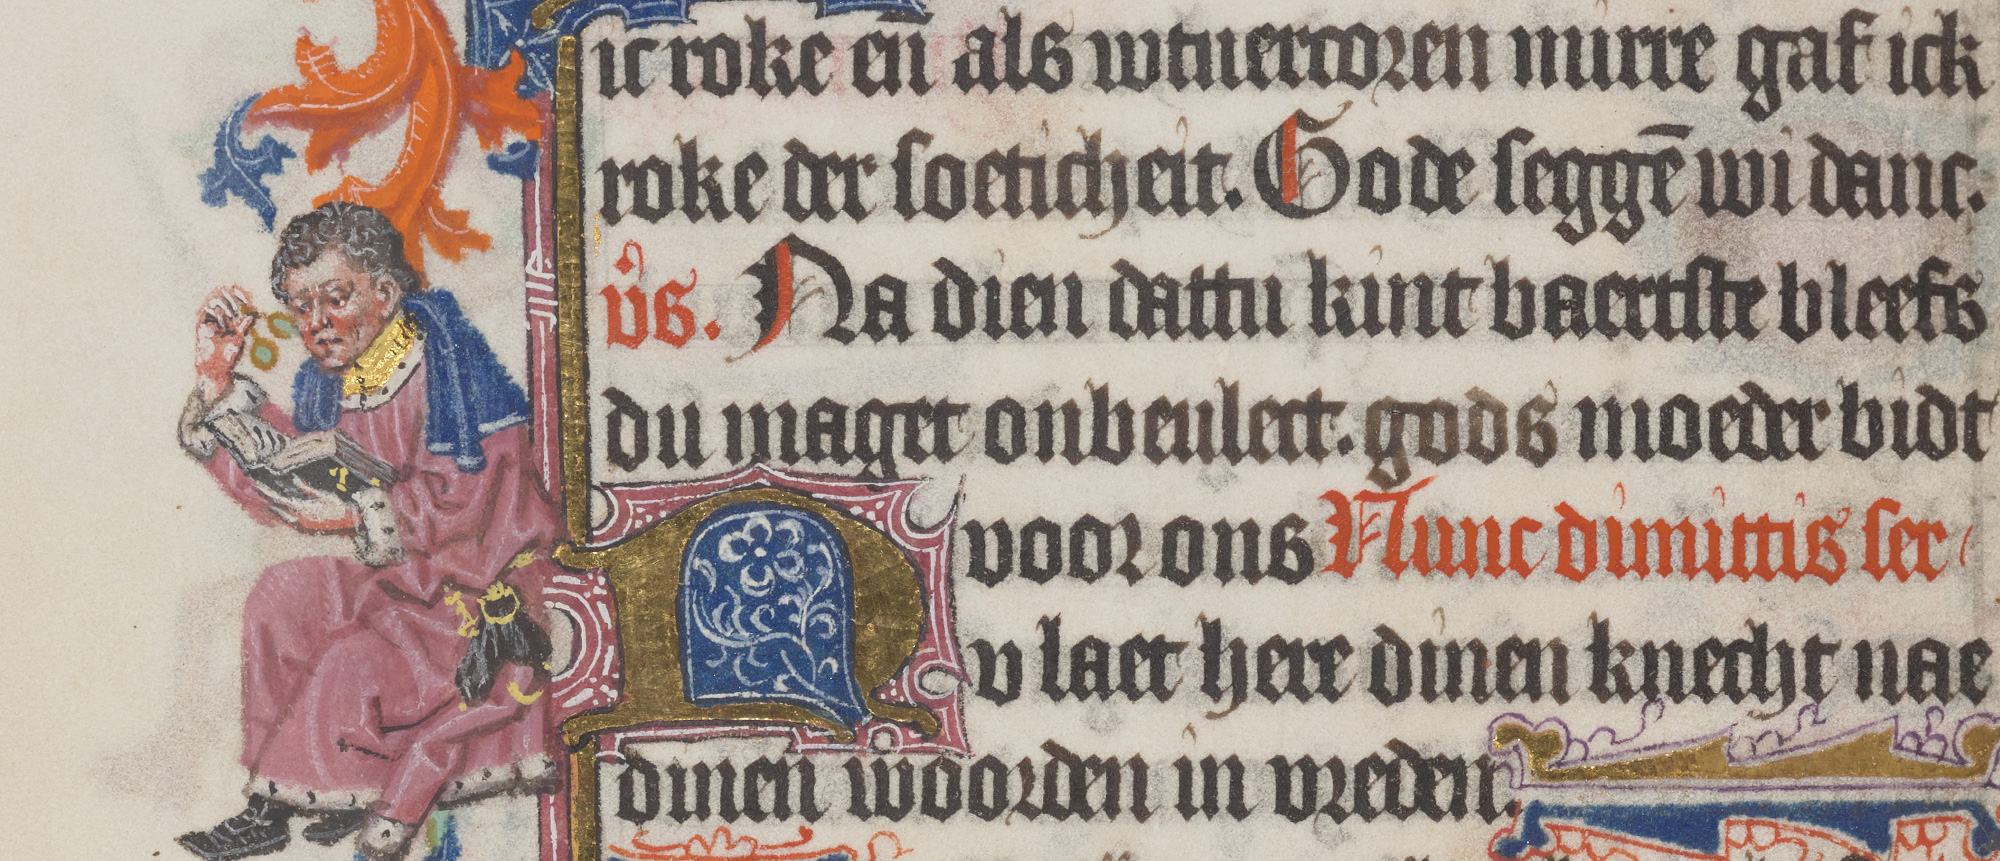 ic roke en̄ als wtuercoren mirre gaf ick
roke der soeticheit. Gode seggē wi danc.
v̄s. Na dien dattu kint baertste bleefs
du maget onbeulect. gods moeder bidt
voor ons Nunc dimittis ser/
Nv laet here dinen knecht nae
dinen woorden in vreden.